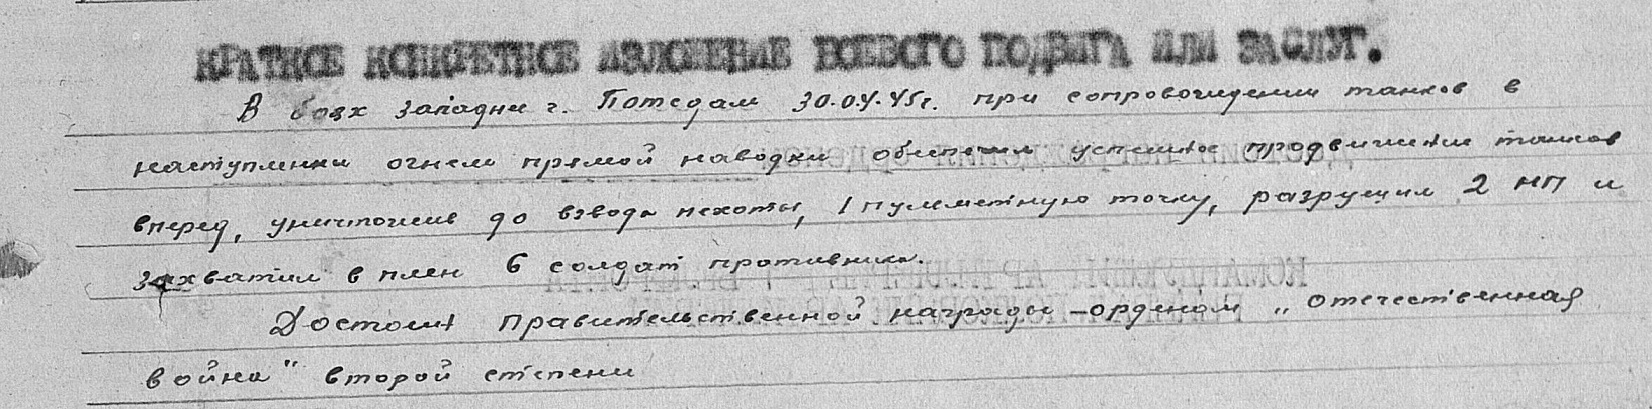 КРАТКОЕ КОНКРЕТНОЕ ИЗЛОЖЕНИЕ БОЕВОГО ПОДВИГА ИЛИ ЗАСЛУГ.
В боях западнее г. Потсдам 30.04.45г. при сопровождении танков в
наступлении огнем прямой наводки обеспечил успешное продвижение танков
вперед, уничтожив до взвода пехоты, 1 пулеметную точку, разрушил 2 НП и
захватил в плен 6 солдат противника.
Достоин правительственной награды – орденом „Отечественная
война" второй степени